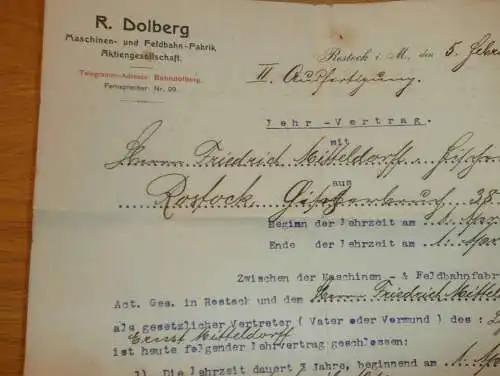 R. Dolberg
Maschinen- und Feldbahn-Fabrik
Aktiengesellschaft.
Telegramm-Adresse: Bahndolberg.
Fernsprecher Nr. 09.
Rostock i. M., den 5. Febr
II. Ausfertigung.
Lehr-Vertrag.
mit
Herrn Friedrich Mitteldorff
aus
Rostock
Beginn der Lehrzeit am 1.
Ende der Lehrzeit am 1.
Zwischen der Maschinen - & Feldbahnfabr
Act. Ges. in Rostock und dem Herrn Friedrich Mittel
als gesetzlicher Vertreter ( Vater oder Vormund ) des :
Ernst Mitteldorff
ist heute folgender Lehrvertrag geschlossen:
1) Die Lehrzeit dauert Jahre, beginnend am 1.